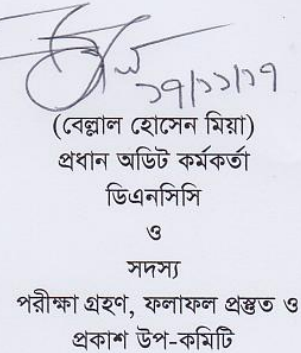 ১৭/১১/১৭
(বেল্লাল হোসেন মিয়া)
প্রধান অডিট কর্মকর্তা
ডিএনসিসি
ও
সদস্য
পরীক্ষা গ্রহণ, ফলাফল প্রস্তুত ও
প্রকাশ উপ-কমিটি